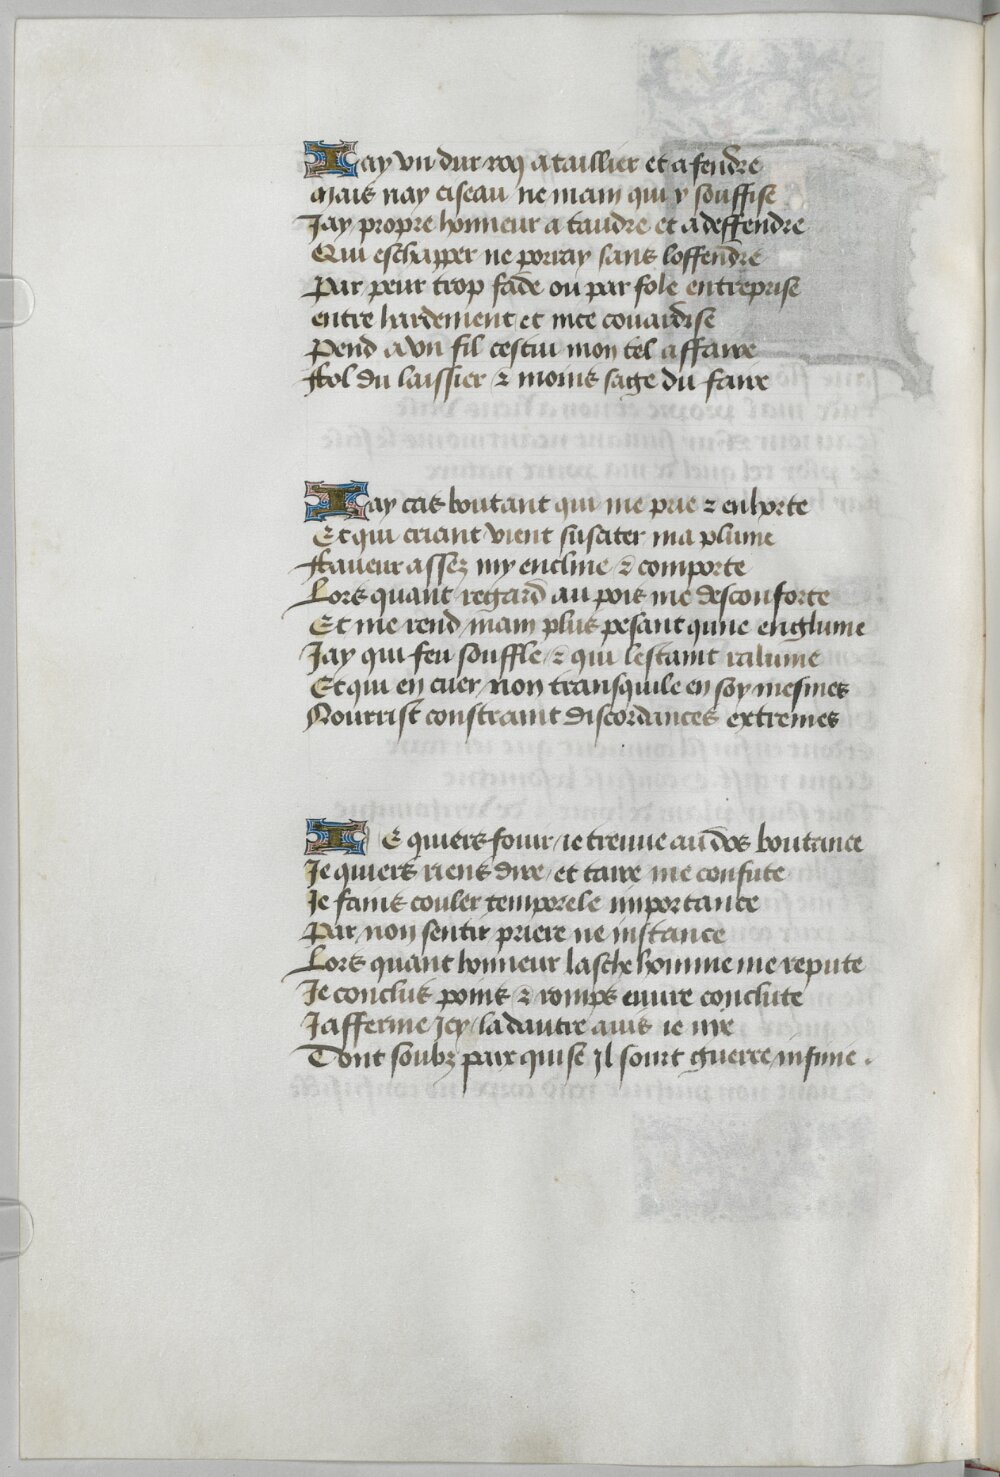 Iay vn dur roq a taillier et a fendre
Mais nay ciseau ne main qui y souffise
Jay propre honneur a taudre et a deffendre
Qui eschapper ne porray sans loffendre
Par peur trop fade ou par fole entreprise
entre hardement et nice couardise
Pend a vn fil cestui mon tel affaire
Fol du laissier & moins sage du faire
Iay cas boutant qui me prie & enhorte
Et qui criant vient susciter ma plume
Faueur assez my encline & comporte
Lors quant regard au pois me desconforte
Et me rend main plus pesant qune englume
Jay qui feu souffle & qui lestaint ralume
Et qui en cuer non transquile en soy mesmes
Nourrist constraint discordances extremes
Ie quiers fouir ie treuue au dos boutance
Je quiers riens dire et taire me confute
Je fains couler temporele importance
Par non sentir priere ne instance
Lors quant honneur lasche homme me repute
Je conclus poins & romps euure conclute
Jafferme jcy la dautre auis ie nye
Dont soubz paix quise jl sourt guerre infinie .